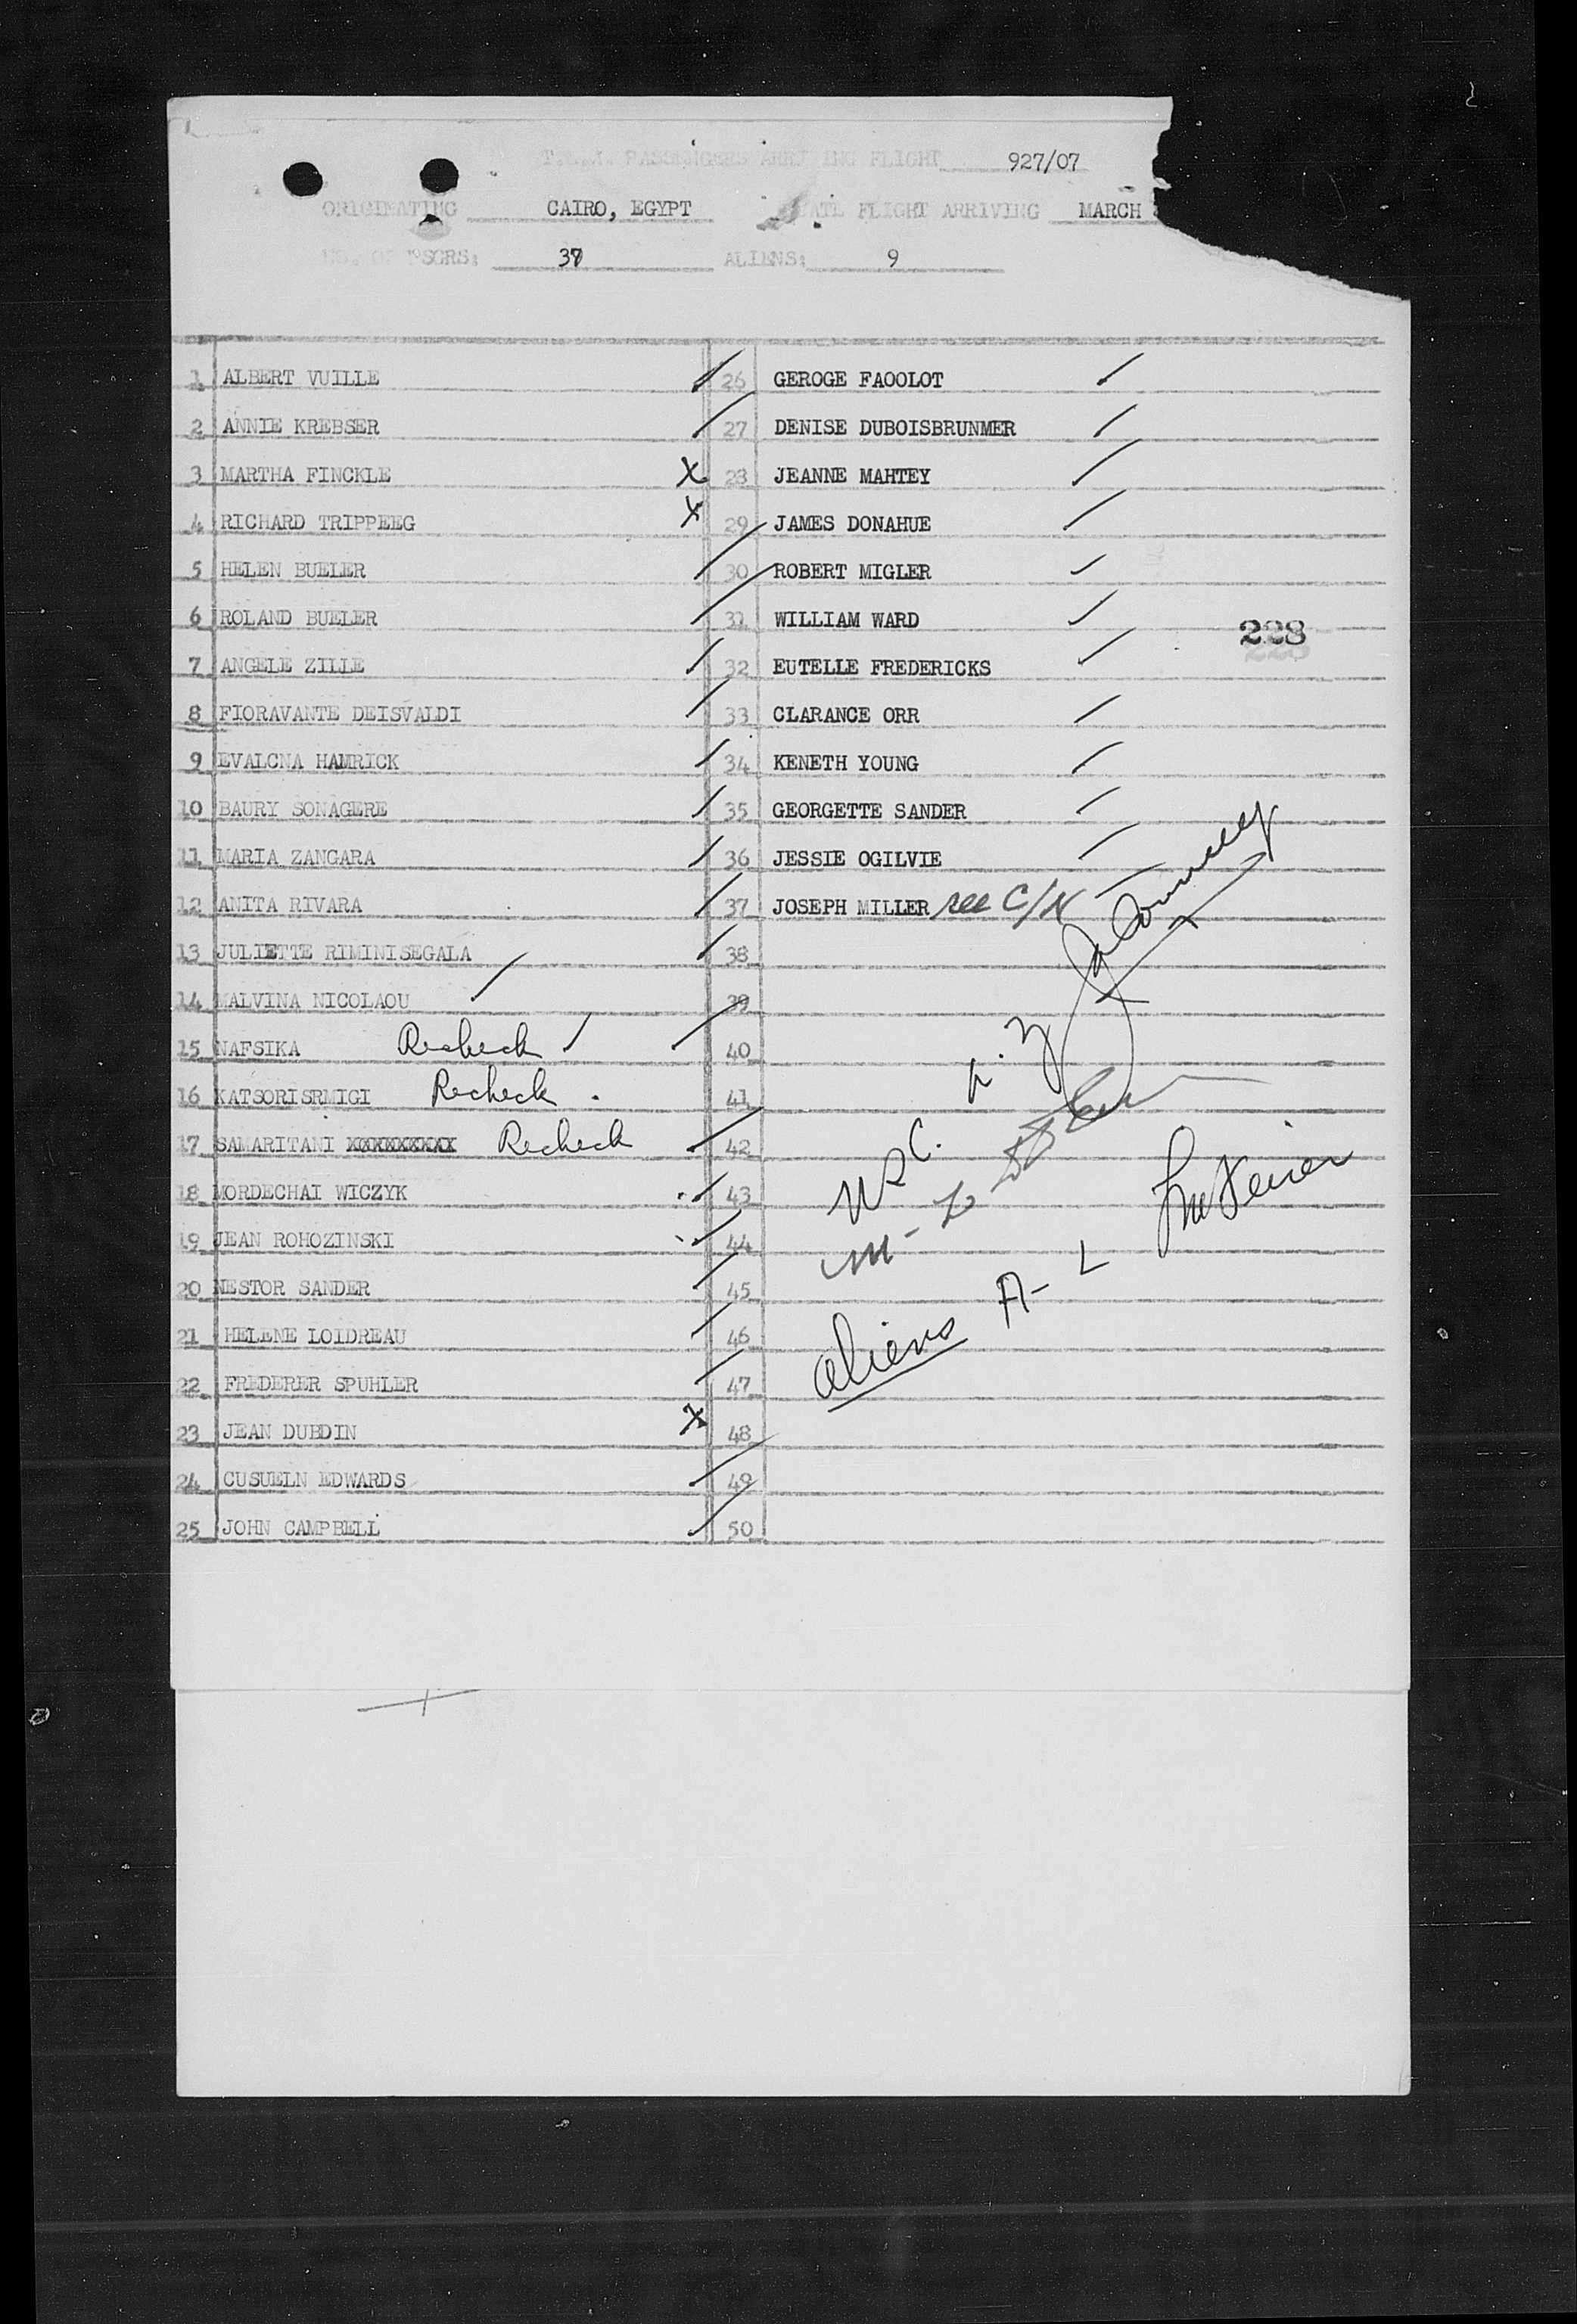 T.W.A. PASSENGERS ARRIVING FLIGHT 927/07
ORIGINATING CAIRO, EGYPT DATE FLIGHT ARRIVING MARCH
NO. OF PSGRS: 37 ALIENS: 9
1 ALBERT VUILLE
2 ANNIE KREBSER
3 MARTHA FINCKLE X
4 RICHARD TRIPPEEG X
5 HELEN BUELER
6 ROLAND BUELER
7 ANGELE ZILLE
8 FIORAVANTE DEISVALDI
9 EVALCNA HAMRICK
10 BAURY SONAGERE
11 MARIA ZANGARA
12 ANITA RIVARA
13 JULIETTE RIMINISEGALA
14 MALVINA NICOLAOU
15 NAFSIKA Recheck
16 KATSORISRMIGI Recheck
17 SAMARITANI Recheck
18 MORDECHAI WICZYK
19 JEAN ROHOZINSKI
20 NESTOR SANDER
21 HELENE LOIDREAU
22 FREDERER SPUHLER
23 JEAN DUBDIN X
24 CUSUELN EDWARDS
25 JOHN CAMPBELL
26 GEROGE FAOOLOT
27 DENISE DUBOISBRUNMER
28 JEANNE MAHTEY
29 JAMES DONAHUE
30 ROBERT MIGLER
31 WILLIAM WARD
32 EUTELLE FREDERICKS
33 CLARANCE ORR
34 KENETH YOUNG
35 GEORGETTE SANDER
36 JESSIE OGILVIE
37 JOSEPH MILLER see C/N
38
39
40
41
42
43
44
45
46
47
48
49
50
228
USC.
M - Z
aliens A - L